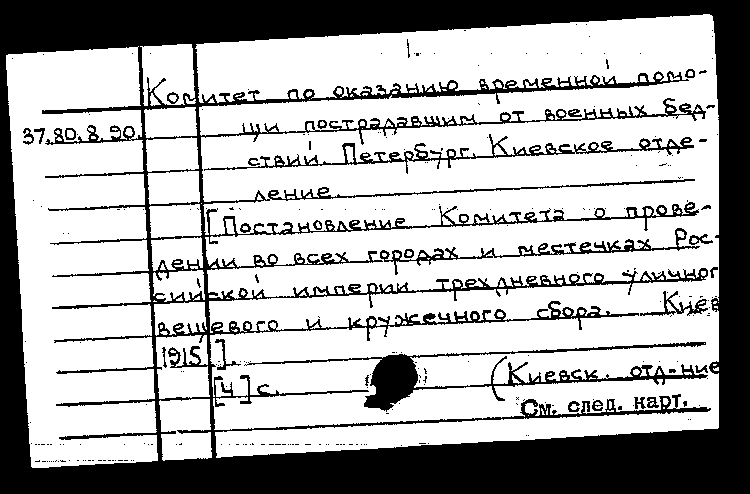 1.
Комитет по оказанию временной помо-
37.80.8.90. щи пострадавшим от военных бед-
ствий. Петербург. Киевское отде-
ление.
[Постановление Комитета о прове-
дении во всех городах и местечках Рос-
сийской империи трехдневного уличног
вещевого и кружечного сбора. Киев
1915].
[4] с.
(Киевск. отд-ние
См. след. карт.